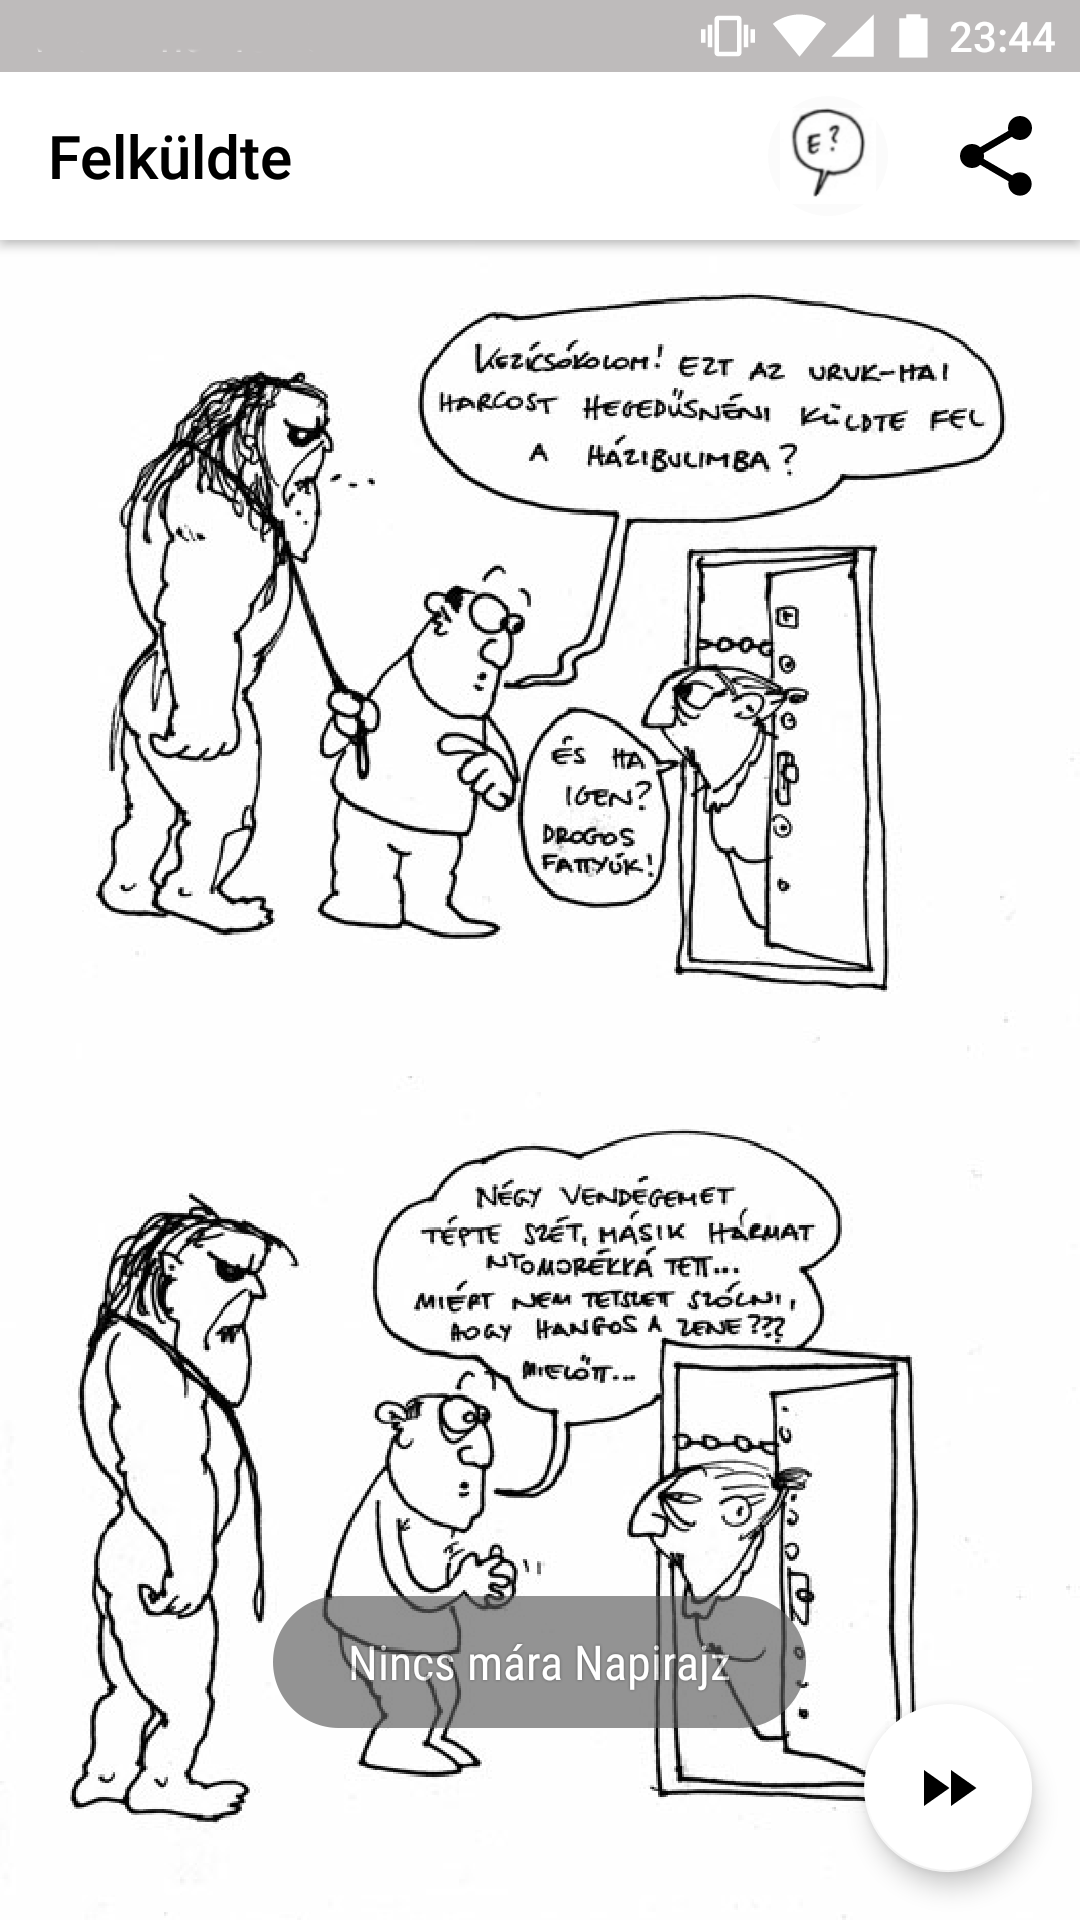 23:44
Felküldte
E?
KEZÍCSÓKOLOM! EZT AZ URUK-HAI
HARCOST HEGEDŰSNÉNI KÜLDTE FEL
A HÁZIBULIMBA?
ÉS HA
IGEN?
DROGOS
FATTYÚK!
NÉGY VENDÉGEMET
TÉPTE SZÉT, MÁSIK HÁRMAT
NYOMORÉKKÁ TETT...
MIÉRT NEM TETSZET SZÓLNI,
HOGY HANGOS A ZENE???
MIELŐTT...
Nincs mára Napirajz